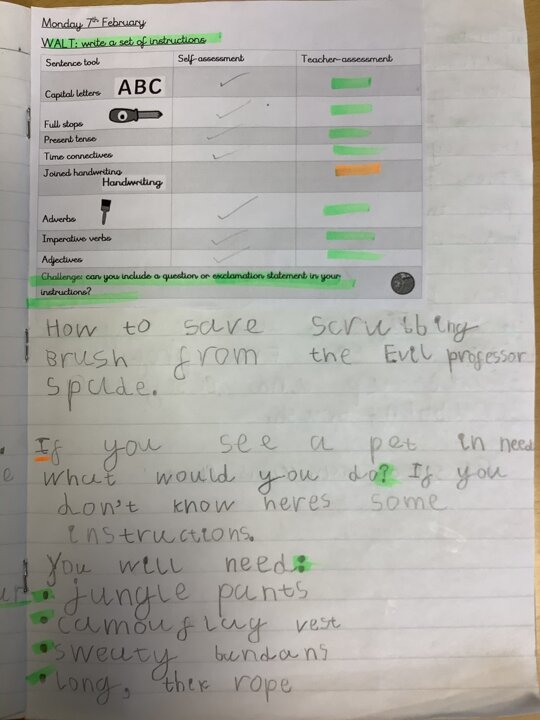 Monday 7th February
WALT: write a set of instructions
Sentence tool Self-assessment Teacher-assessment
Capital letters ABC
Full stops
Present tense
Time connectives
Joined handwriting
Handwriting
Adverbs
Imperative verbs
Adjectives
Challenge: can you include a question or exclamation statement in your
instructions?
How to save scrubbing
Brush from the Evil professor
Spade.
If you see a pet in need
what would you do? If you
don't know heres some
instructions.
You will need:
• jungle pants
• camouflag vest
• sweaty bandans
• long, thek rope